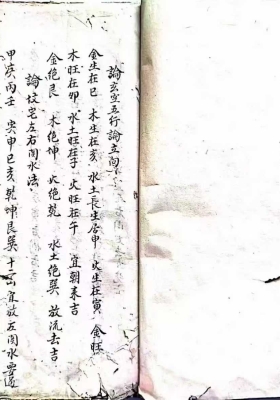 論玄空五行論立向
金生在巳 木生在亥 水土長生居申 火生在寅 金旺
木旺在卯 水土旺在子 火旺在午 宜朝來吉
金絶艮 木絶坤 火絶乾 水土絶巽 放流去吉
論坟宅左右闭水法
甲庚丙壬 寅申巳亥乾坤艮巽十二向宜放左闭水要